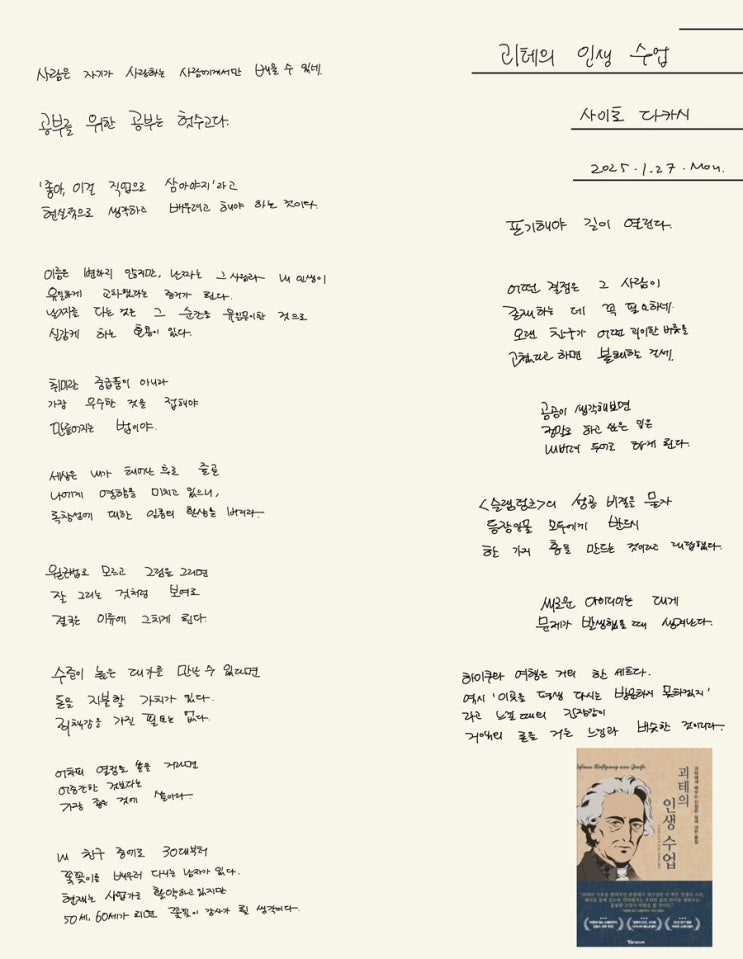 괴테의 인생 수업
사이토 다카시
2025.1.27. Mon.
사람은 자기가 사랑하는 사람에게서만 배울 수 있네.
공부를 위한 공부는 헛수고다.
'좋아, 이걸 직업으로 삼아야지'라고
현실적으로 생각하고 배우려고 해야 하는 것이다.
이름은 변하지 않지만, 날짜는 그 사람과 내 인생이
유일하게 교차했다는 증거가 된다.
날짜를 다는 것은 그 순간을 유일무이한 것으로
실감케 하는 효용이 있다.
취미란 중급품이 아니라
가장 우수한 것을 접해야
만들어지는 법이야.
세상은 내가 태어난 후로 줄곧
나에게 영향을 미치고 있으니,
독창성에 대한 일종의 환상을 버려라.
원근법도 모르고 그림을 그리면
잘 그리는 것처럼 보여도
결국은 이류에 그치게 된다.
수준이 높은 대가를 만날 수 있다면
돈을 지불할 가치가 있다.
죄책감을 가질 필요는 없다.
어차피 열정을 쏟을 거라면
어중간한 것보다는
가장 좋은 것에 쏟아라.
내 친구 중에도 30대부터
꽃꽂이를 배우러 다니는 남자가 있다.
현재는 사업가로 활약하고 있지만
50세, 60세가 되면 꽃꽂이 강사가 될 생각이다.
포기해야 길이 열린다.
어떤 결점은 그 사람이
존재하는 데 꼭 필요하네.
오랜 친구가 어떤 괴이한 버릇을
고쳤다고 하면 불쾌하는 걸세.
곰곰이 생각해보면
정말로 하고 싶은 일은
내버려 두어도 하게 된다.
<슬램덩크>의 성공 비결을 묻자
등장인물 모두에게 반드시
한 가지 흠을 만드는 것이라고 대답했다.
새로운 아이디어는 대개
문제가 발생했을 때 생겨난다.
하이쿠와 여행은 거의 한 세트다.
역시 '이곳을 평생 다시는 방문하지 못하겠지'
라고 느낄 때의 긴장감이
거액의 돈을 거는 느낌과 비슷한 것이리라.
괴테의
인생 수업